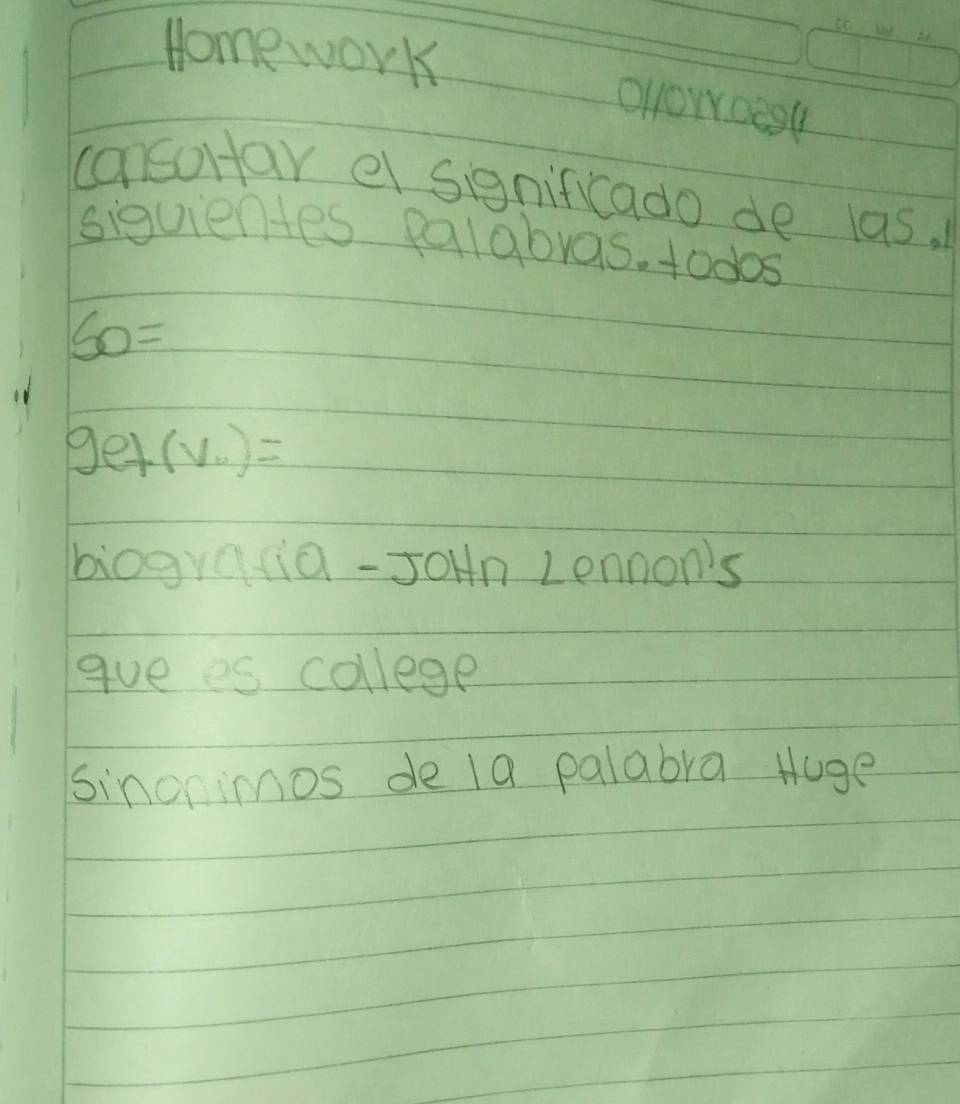 Homework
Desarrollo
consoltar el significado de las.
siguientes palabras. todos
So=
get(v..)=
biografia - JOHn Lennon's
que es college
Sinonimos de la palabra Huge